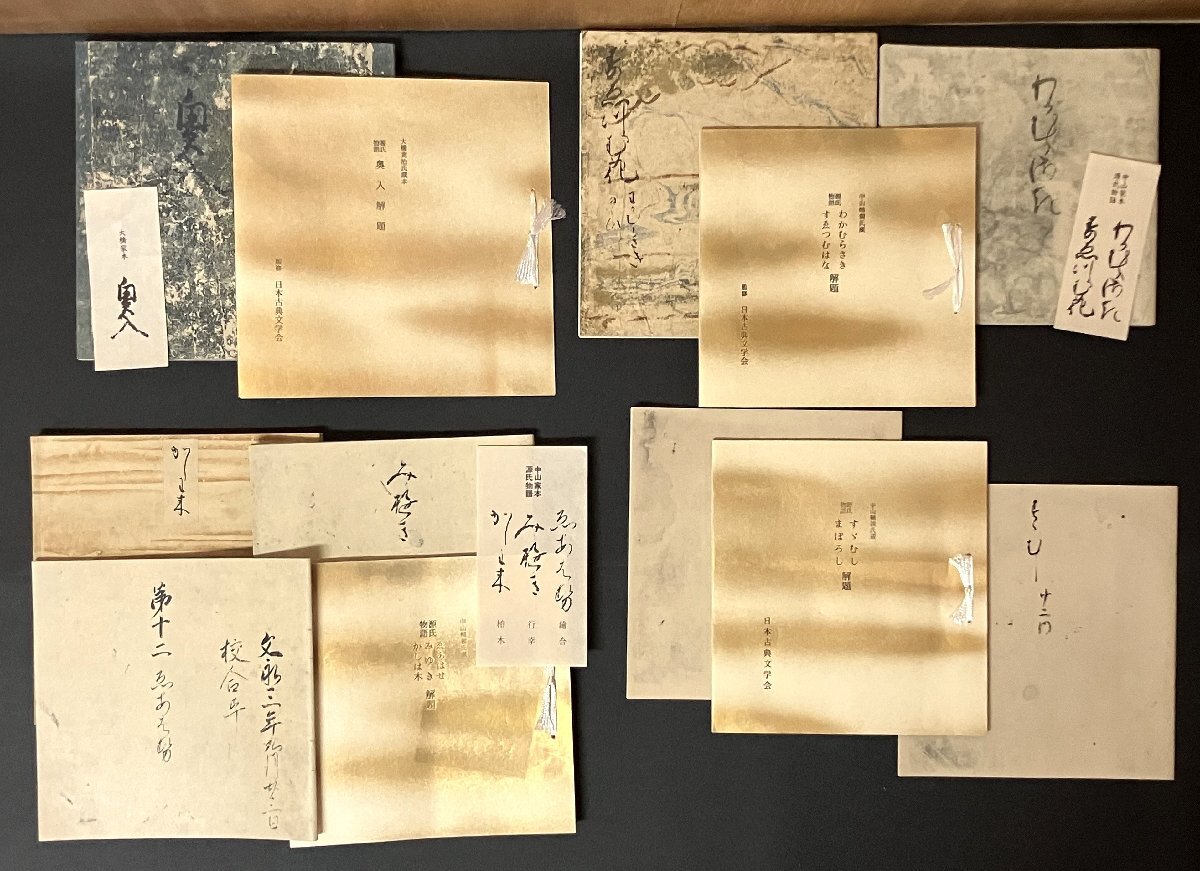 奥入
大橋家本
奥入
大橋寛治氏蔵本
源氏
物語
奥入解題
監修 日本古典文学会
すゑつむ花
わかむらさき
中山家本
源氏物語
わかむらさき
すゑつむ花
中山輔親氏蔵
源氏
物語
わかむらさき
すゑつむはな
解題
監修 日本古典文学会
かしは木
みゆき
中山家本
源氏物語
ゑあはせ
みゆき
かしは木
繪合
行幸
柏木
文永三年
校合畢
第十二 ゑあはせ
中山輔親氏蔵
源氏
物語
ゑあはせ
みゆき
かしは木
解題
中山輔親氏蔵
源氏
物語
すゞむし
まぼろし
解題
日本古典文学会